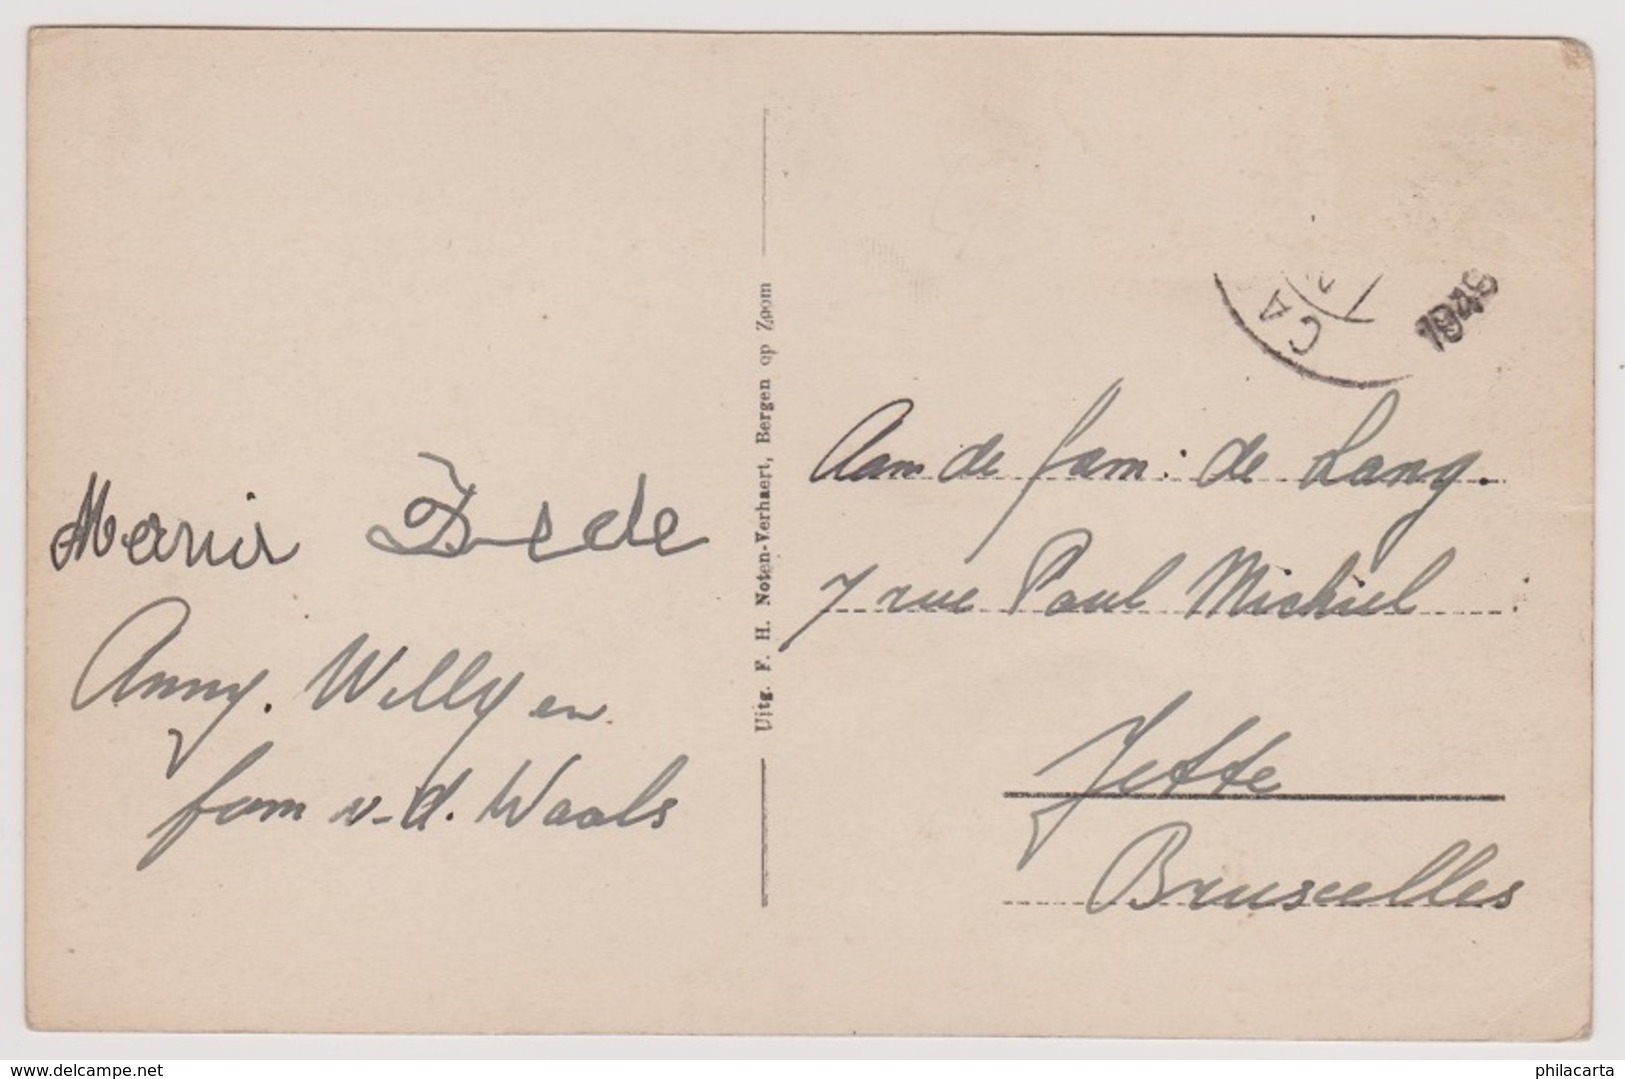 Dede
Anny. Willy en
fam v.d. Waals
Uitg. F. H. Noten-Verhaert, Bergen op Zoom
CA
1948
Aan de fam: de Lang.
7 rue Paul Michiel
Jette
Bruxelles
www.delcampe.net
philacarta